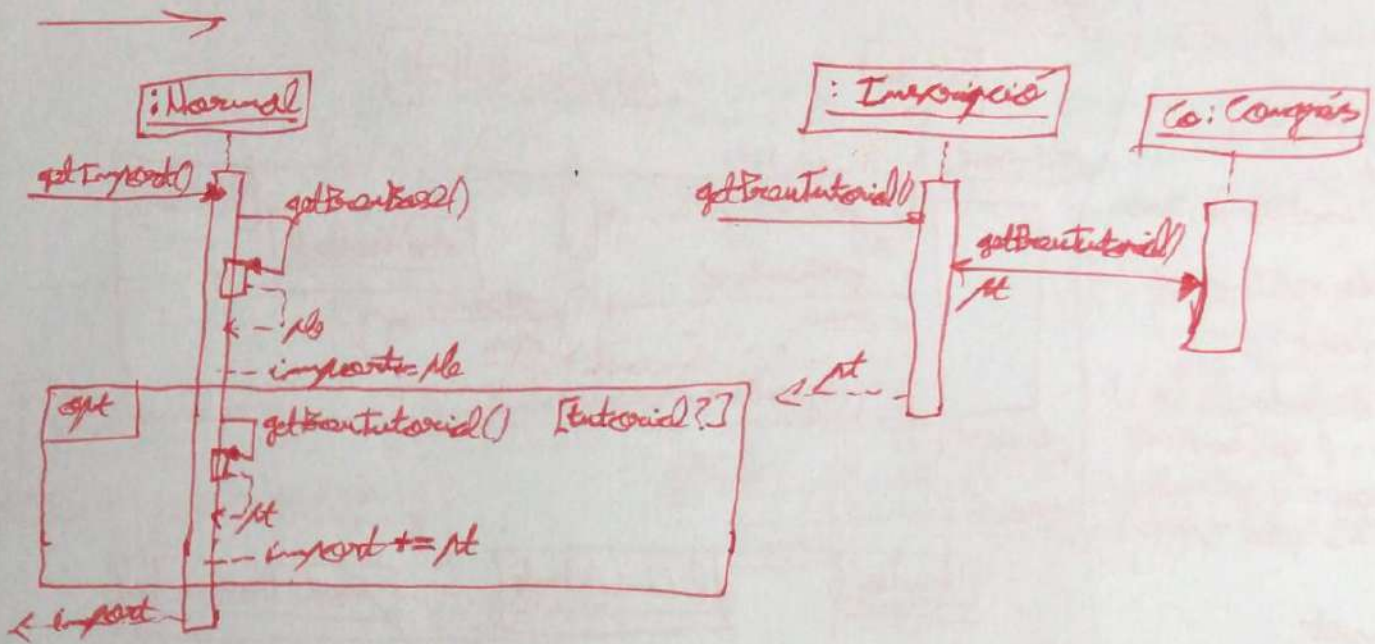 :Normal
getImport()
getPreuBase()
pb
import = pb
opt
getPreuTutorial() [tutorial?]
pt
import += pt
import
: Inscripció
Co: Congrés
getPreuTutorial()
getPreuTutorial()
pt
pt